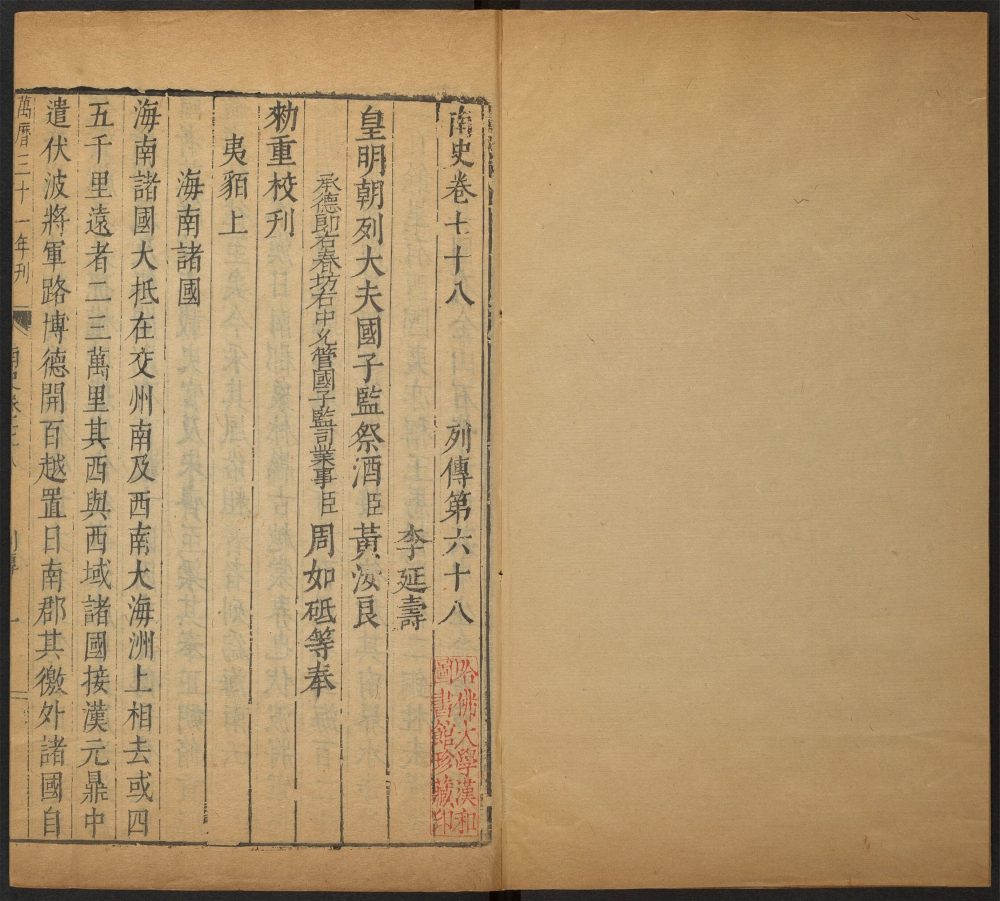 南史卷七十八　列傳第六十八
李延壽
皇明朝列大夫國子監祭酒臣黃汝良
承德郎右春坊右中允管國子監司業事臣周如砥等奉
勑重校刊
夷貊上
海南諸國
海南諸國大抵在交州南及西南大海洲上相去或四
五千里遠者二三萬里其西與西域諸國接漢元鼎中
遣伏波將軍路博德開百越置日南郡其徼外諸國自
萬曆三十一年刊
南史卷七十八
列傳
一
哈佛大學漢和
圖書館珍藏印